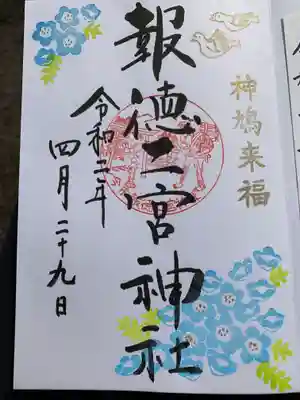 神鳩来福
報徳二宮神社
令和三年
四月二十九日